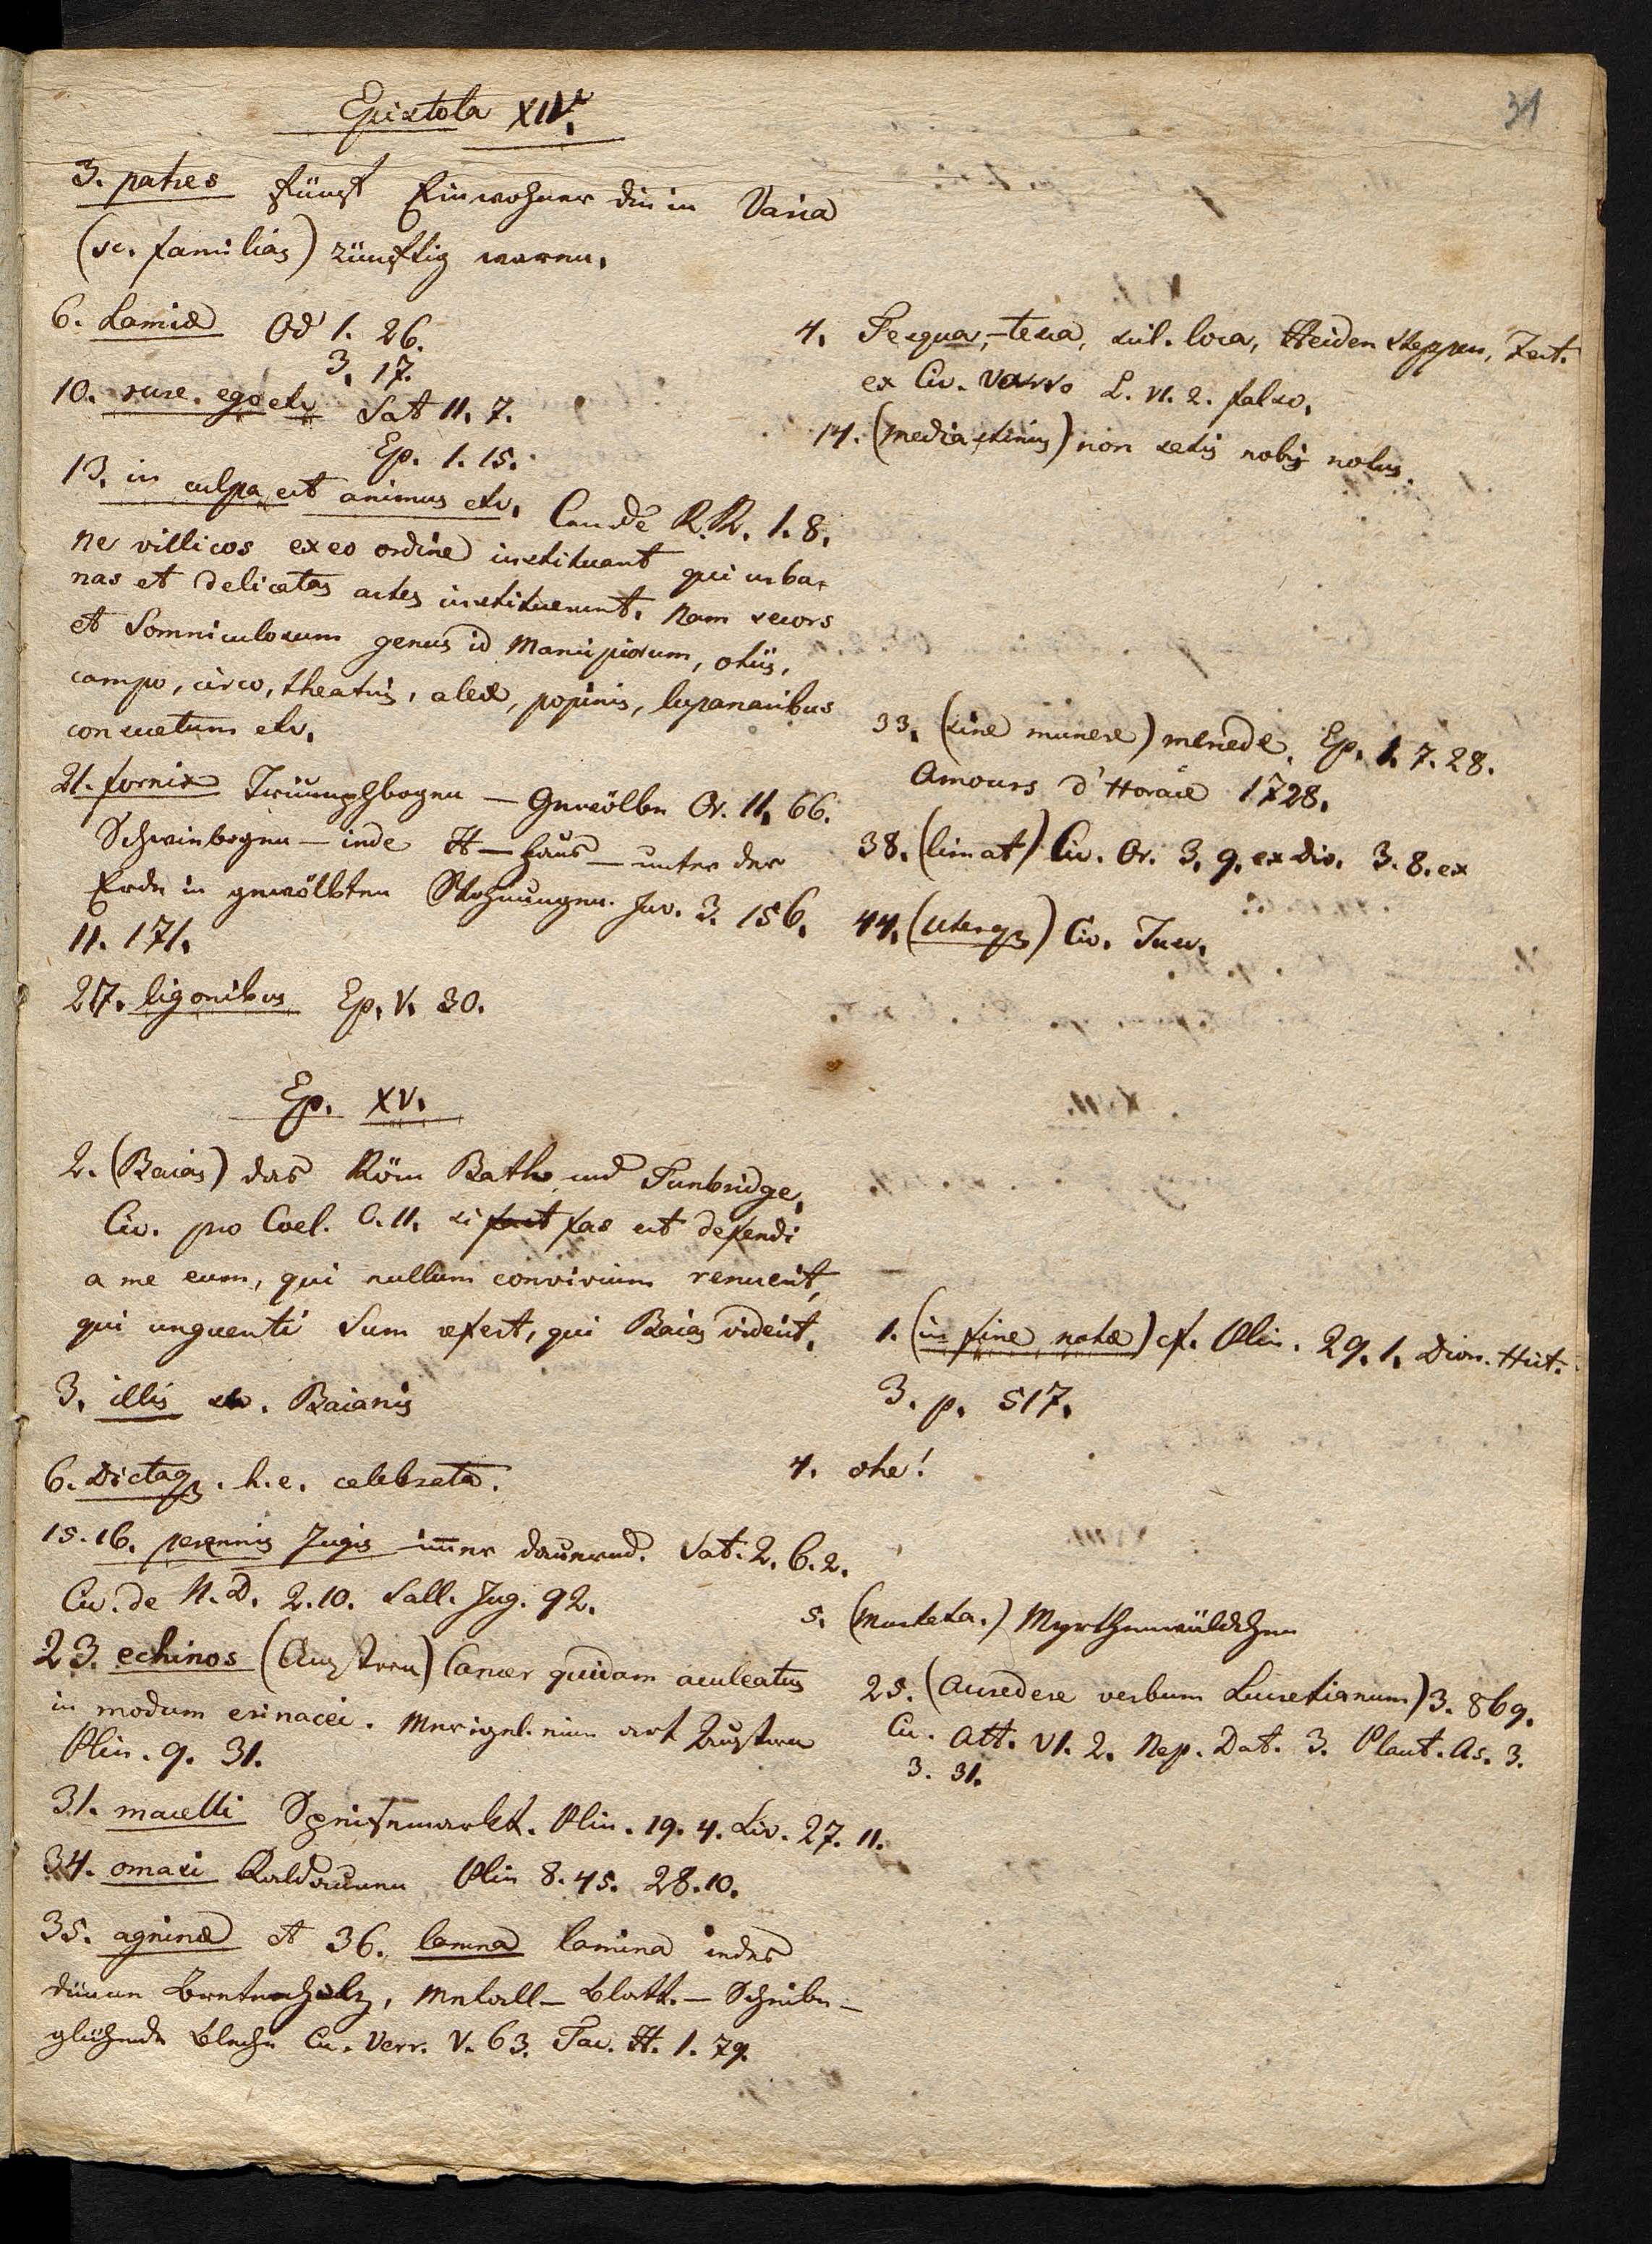 31
Epistola XIV.
3. patres fünf Einwohner die in Varia
(sc. familias) zünftig waren.
6. Lamiae Od 1. 26.
3. 17.
10. rure. ego etc Sat 11. 7.
Ep. 1. 15.
13. in culpa est animus etc. R.R. 1. 8.
ne villicos ex eo ordine instituant qui urba-
nas et delicatas artes instituerunt. Nam secors
et Somniculosum genus id Mancipiorum, otiis,
campo, circo, theatris, aleae, popinis, lupanaribus
consuetum etc.
21. fornix Triumphbogen – Gewölbe Or. 11. 66.
Schwinbogen – inde H – haus – unter der
Erde in gewölbten Wohnungen. Juv. 3. 156.
11. 171.
27. ligonibus Ep. V. 30.
4. Tesqua, – tesca, scil. loca, Heiden Steppen,
ex Cic. Varro L. VI. 2. falso.
14. (mediastinus) non satis nobis notus.
33. (sine munere) Ep. 1. 7. 28.
Amours d'Horace 1728.
38. (limat) Cic. Or. 3. 9. ex div. 3. 8. ex
44. (uterq3) Cic. Tusc.
Ep. XV.
2. (Baias) das Röm Bath und Tunbridge,
Cic. pro Coel. C. 11. si fas est defendi
a me eum, qui nullum convivium renuerit,
qui unguenti Sum refert, qui Baias viderit.
3. illis sc. Baianis
6. Dictaq3. h. e. celebrata.
15. 16. perennis Jugis – immer dauernd. Sat. 2. 6. 2.
Cic. de N. D. 2. 10. Sall. Jug. 92.
23. echinos (Austern) Cancer quidam aculeatus
in modum erinacei. Meerigel. eine art Austern
Plin. 9. 31.
31. macelli Speisemarkt. Plin. 19. 4. Liv. 27. 11.
34. omasi Kaldaunen Plin 8. 45. 28. 10.
35. agninae et 36. lamna lamina jedes
dünne Bretterholz, Metall – Blatt. – Scheibe –
glühende Bleche Cic. Verr. V. 63. Tac. H. 1. 79.
1. (in fine notae) cf. Plin. 29. 1. Dion. Hist.
3. p. 517.
4. ohe!
5. (murteta.) Myrthenwäldchen
25. (accredere verbum Lucretianum) 3. 869.
Cic. Att. VI. 2. Nep. Dat. 3. Plaut. As. 3.
3. 31.